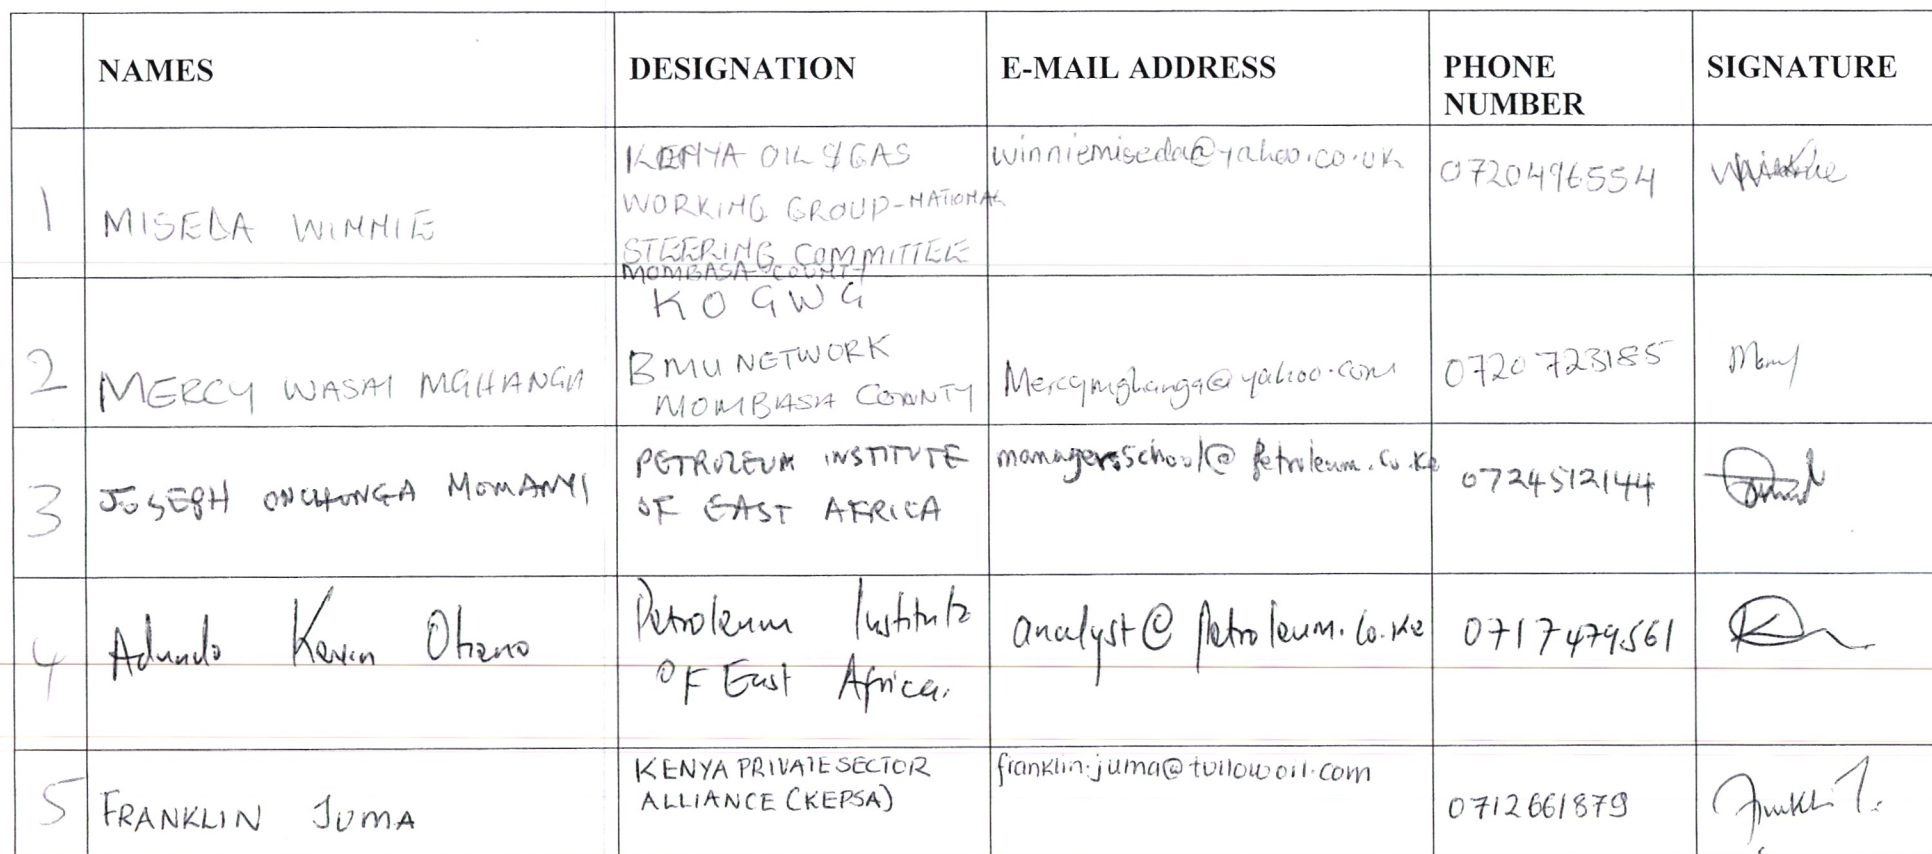 NAMES DESIGNATION E-MAIL ADDRESS PHONE NUMBER SIGNATURE
1 MISEDA WINNIE
KENYA OIL & GAS
WORKING GROUP-NATIONAL
STEERING COMMITTEE
MOMBASA COUNTY
winniemiseda@yahoo.co.uk
0720496554
2 MERCY WASAI MGHANGA
KOGWG
BMU NETWORK
MOMBASA COUNTY
Mercymghanga@yahoo.com
0720723185
Mercy
3 JOSEPH ONCHONGA MOMANYI
PETROLEUM INSTITUTE
OF EAST AFRICA
managersschool@petroleum.co.ke
0724512144
4 Adundo Kevin Otieno
Petroleum Institute
OF East Africa.
analyst@petroleum.co.ke
0717479561
5 FRANKLIN JUMA
KENYA PRIVATE SECTOR
ALLIANCE (KEPSA)
franklin.juma@tullowoil.com
0712661879